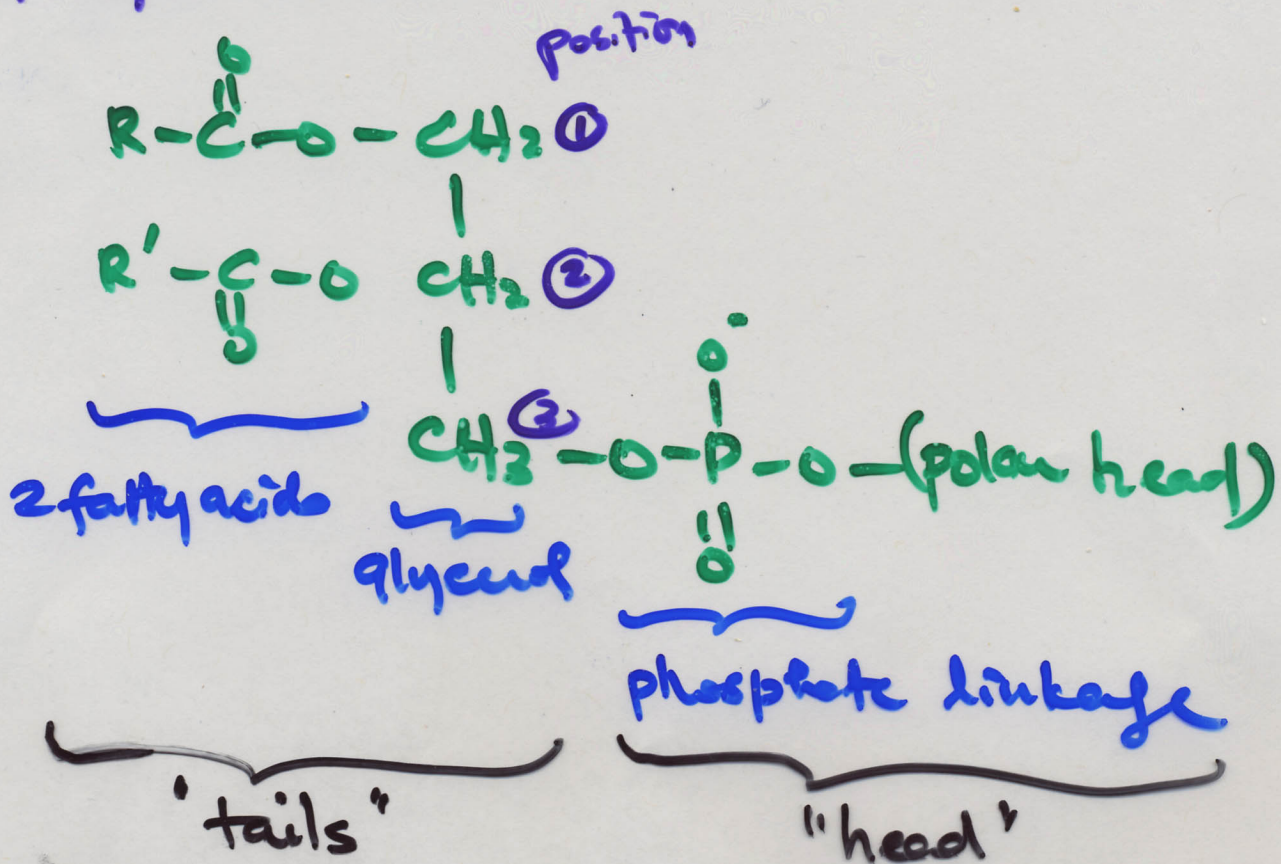 position
O
R-C-O-CH2 ①
R'-C-O CH2 ②
O
O-
CH3 ③ -O-P-O-(polar head)
O
2 fatty acids
glycerol
phosphate linkage
"tails"
"head"